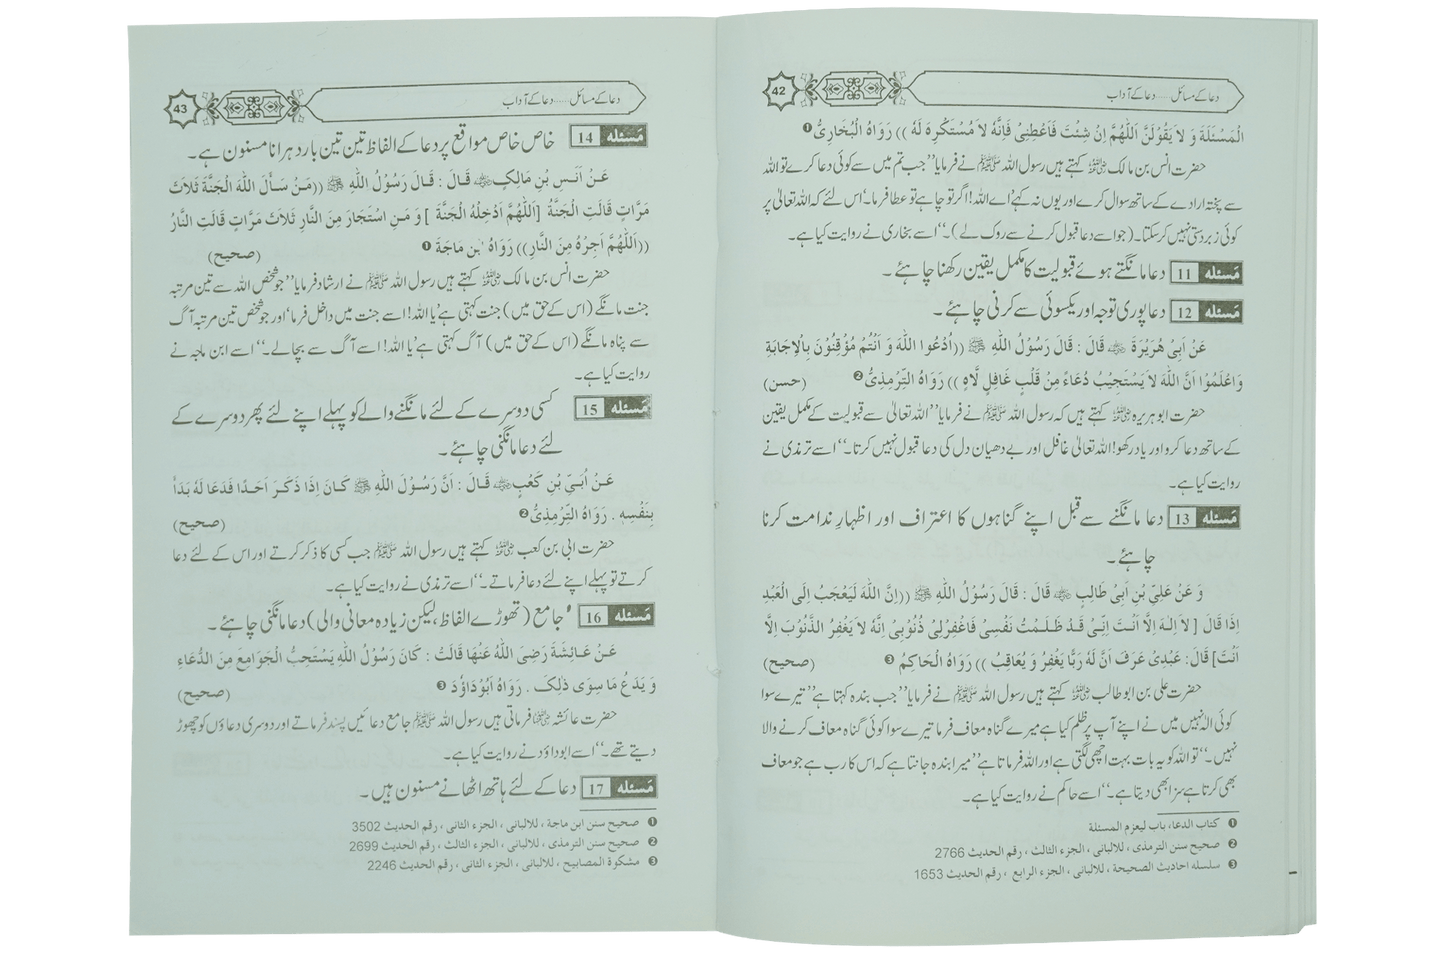 42
دعا کے مسائل.....دعا کے آداب
الْمَسْئَلَةَ وَ لاَ يَقُوْلَنَّ اَللّٰهُمَّ اِنْ شِئْتَ فَأَعْطِنِىْ فَاِنَّهُ لاَ مُسْتَكْرِهَ لَهُ )) رَوَاهُ الْبُخَارِىُّ ❶
حضرت انس بن مالک ﷜ کہتے ہیں رسول اللہ ﷺ نے فرمایا ’’جب تم میں سے کوئی دعا کرے تو اللہ
سے پختہ ارادے کے ساتھ سوال کرے اور یوں نہ کہے’ اے اللہ! اگر تو چاہے تو عطا فرما‘ اس لئے کہ اللہ تعالیٰ پر
کوئی زبردستی نہیں کرسکتا۔ (جو اسے دعا قبول کرنے سے روک لے)۔‘‘ اسے بخاری نے روایت کیا ہے۔
مَسئله 11 دعا مانگتے ہوئے قبولیت کا مکمل یقین رکھنا چاہئے ۔
مَسئله 12 دعا پوری توجہ اور یکسوئی سے کرنی چاہئے ۔
عَنْ اَبِىْ هُرَيْرَةَ ﷜ قَالَ : قَالَ رَسُوْلُ اللّٰهِ ﷺ ((اُدْعُوا اللّٰهَ وَ اَنْتُمْ مُوْقِنُوْنَ بِالْاِجَابَةِ
وَاعْلَمُوْا اَنَّ اللّٰهَ لاَ يَسْتَجِيْبُ دُعَاءً مِنْ قَلْبٍ غَافِلٍ لَّاهٍ )) رَوَاهُ التِّرْمِذِىُّ ❷ (حسن)
حضرت ابو ہریرہ ﷜ کہتے ہیں کہ رسول اللہ ﷺ نے فرمایا ’’اللہ تعالیٰ سے قبولیت کے مکمل یقین
کے ساتھ دعا کرو اور یاد رکھو! اللہ تعالیٰ غافل اور بے دھیان دل کی دعا قبول نہیں کرتا۔‘‘ اسے ترمذی نے
روایت کیا ہے۔
مَسئله 13 دعا مانگنے سے قبل اپنے گناہوں کا اعتراف اور اظہارِ ندامت کرنا
چاہئے ۔
وَ عَنْ عَلِيِّ بْنِ اَبِىْ طَالِبٍ ﷜ قَالَ : قَالَ رَسُوْلُ اللّٰهِ ﷺ ((اِنَّ اللّٰهَ لَيَعْجَبُ اِلَى الْعَبْدِ
اِذَا قَالَ [ لاَ اِلٰـهَ اِلَّا اَنْتَ اِنِّىْ قَدْ ظَلَمْتُ نَفْسِىْ فَاغْفِرْلِىْ ذُنُوْبِىْ اِنَّهُ لاَ يَغْفِرُ الذُّنُوْبَ اِلَّا
اَنْتَ] قَالَ: عَبْدِىْ عَرَفَ اَنَّ لَهُ رَبًّا يَغْفِرُ وَ يُعَاقِبُ )) رَوَاهُ الْحَاكِمُ ❸ (صحیح)
حضرت علی بن ابوطالب ﷜ کہتے ہیں رسول اللہ ﷺ نے فرمایا ’’جب بندہ کہتا ہے’ تیرے سوا
کوئی الٰہ نہیں میں نے اپنے آپ پر ظلم کیا ہے میرے گناہ معاف فرما تیرے سوا کوئی گناہ معاف کرنے والا
نہیں۔‘‘ تو اللہ کو یہ بات بہت اچھی لگتی ہے اور اللہ فرماتا ہے’’ میرا بندہ جانتا ہے کہ اس کا رب ہے جو معاف
بھی کرتا ہے سزا بھی دیتا ہے۔‘‘ اسے حاکم نے روایت کیا ہے۔
❶ كتاب الدعا، باب ليعزم المسئلة
❷ صحيح سنن الترمذى ، للالبانى ، الجزء الثالث ، رقم الحديث 2766
❸ سلسله احاديث الصحيحة ، للالبانى ، الجزء الرابع ، رقم الحديث 1653
43
دعا کے مسائل......دعا کے آداب
مَسئله 14 خاص خاص مواقع پر دعا کے الفاظ تین تین بار دہرانا مسنون ہے۔
عَنْ اَنَسِ بْنِ مَالِكٍ ﷜ قَالَ : قَالَ رَسُوْلُ اللّٰهِ ﷺ ((مَنْ سَأَلَ اللّٰهَ الْجَنَّةَ ثَلاَثَ
مَرَّاتٍ قَالَتِ الْجَنَّةُ [اَللّٰهُمَّ اَدْخِلْهُ الْجَنَّةَ ] وَ مَنِ اسْتَجَارَ مِنَ النَّارِ ثَلاَثَ مَرَّاتٍ قَالَتِ النَّارُ
((اَللّٰهُمَّ اَجِرْهُ مِنَ النَّارِ)) رَوَاهُ ابْن مَاجَةَ ❶ (صحیح)
حضرت انس بن مالک ﷜ کہتے ہیں رسول اللہ ﷺ نے ارشاد فرمایا ’’جو شخص اللہ سے تین مرتبہ
جنت مانگے (اس کے حق میں) جنت کہتی ہے’ یا اللہ! اسے جنت میں داخل فرما‘ اور جو شخص تین مرتبہ آگ
سے پناہ مانگے (اس کے حق میں) آگ کہتی ہے’ یا اللہ! اسے آگ سے بچالے۔‘‘ اسے ابن ماجہ نے
روایت کیا ہے۔
مَسئله 15 کسی دوسرے کے لئے مانگنے والے کو پہلے اپنے لئے پھر دوسرے کے
لئے دعا مانگنی چاہئے ۔
عَنْ اُبَيِّ بْنِ كَعْبٍ ﷜ قَالَ : اَنَّ رَسُوْلَ اللّٰهِ ﷺ كَانَ اِذَا ذَكَرَ اَحَدًا فَدَعَا لَهُ بَدَأَ
بِنَفْسِهٖ . رَوَاهُ التِّرْمِذِىُّ ❷ (صحیح)
حضرت ابی بن کعب ﷜ کہتے ہیں رسول اللہ ﷺ جب کسی کا ذکر کرتے اور اس کے لئے دعا
کرتے تو پہلے اپنے لئے دعا فرماتے۔‘‘ اسے ترمذی نے روایت کیا ہے۔
مَسئله 16 جامع (تھوڑے الفاظ، لیکن زیادہ معانی والی) دعا مانگنی چاہئے ۔
عَنْ عَائِشَةَ رَضِىَ اللّٰهُ عَنْهَا قَالَتْ : كَانَ رَسُوْلُ اللّٰهِ يَسْتَحِبُّ الْجَوَامِعَ مِنَ الدُّعَاءِ
وَ يَدَعُ مَا سِوٰى ذٰلِكَ . رَوَاهُ اَبُوْدَاوُدَ ❸ (صحیح)
حضرت عائشہ ﷞ فرماتی ہیں رسول اللہ ﷺ جامع دعائیں پسند فرماتے اور دوسری دعاؤں کو چھوڑ
دیتے تھے۔‘‘ اسے ابوداؤد نے روایت کیا ہے۔
مَسئله 17 دعا کے لئے ہاتھ اٹھانے مسنون ہیں ۔
❶ صحيح سنن ابن ماجة ، للالبانى ، الجزء الثانى ، رقم الحديث 3502
❷ صحيح سنن الترمذى ، للالبانى ، الجزء الثالث ، رقم الحديث 2699
❸ مشكوة المصابيح ، للالبانى ، الجزء الثانى ، رقم الحديث 2246